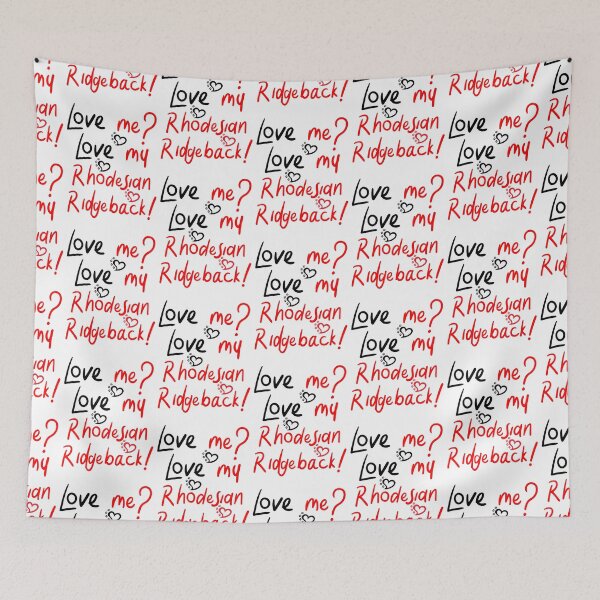 my Ridgeback! Love my Ridgeback! Love my Ridgeback! Love
Love me? Rhodesian Love me? Rhodesian Love me?
Love my Ridgeback! Love my Ridgeback! Love my
me? Rhodesian Love me? Rhodesian Love me? Rhodesian
my Ridgeback! Love my Ridgeback! Love my Ridgeback!
Love me? Rhodesian Love me? Rhodesian Love me?
Love my Ridgeback! Love my Ridgeback! Love my
me? Rhodesian Love me? Rhodesian Love me? Rhodesian
my Ridgeback! Love my Ridgeback! Love my Ridgeback!
Love me? Rhodesian Love me? Rhodesian Love me?
Love my Ridgeback! Love my Ridgeback! Love my
me? Rhodesian Love me? Rhodesian Love me? Rhodesian
my Ridgeback! Love my Ridgeback! Love my Ridgeback!
Love me? Rhodesian Love me? Rhodesian Love me?